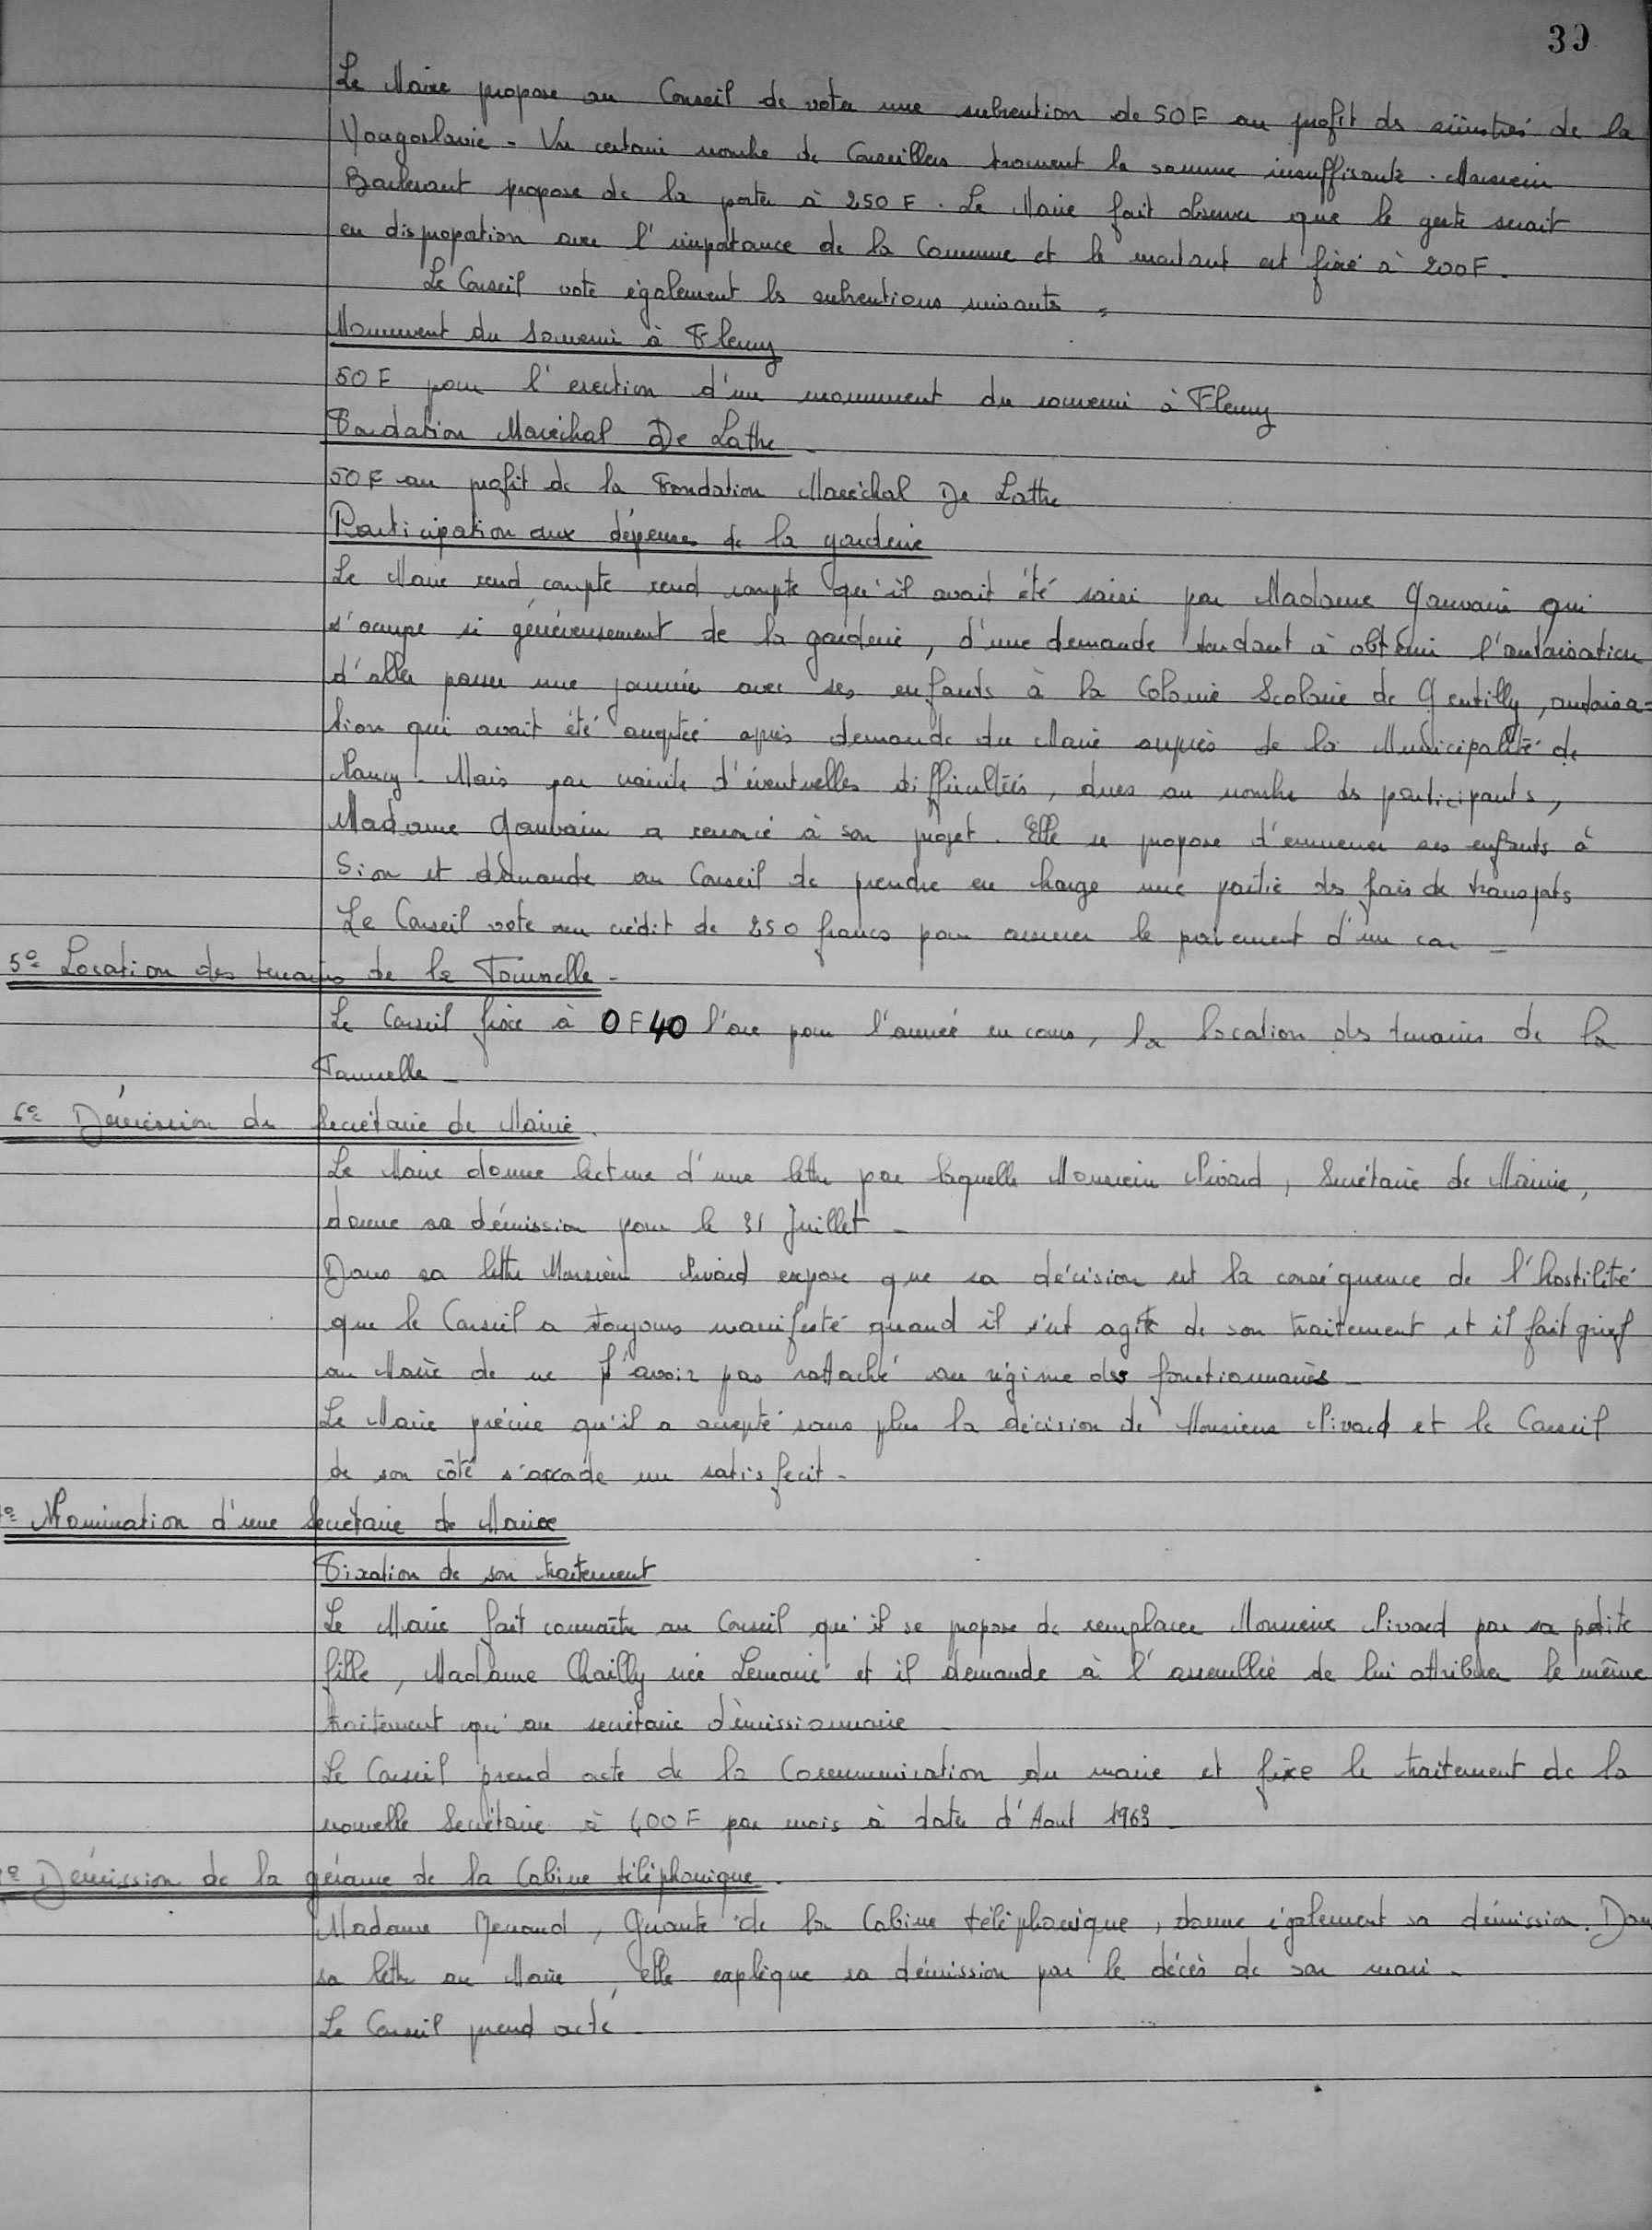 39
Le Maire propose au Conseil de voter une subvention de 50 F au profit des sinistrés de la
Yougoslavie - Un certain nombre de Conseillers trouvent la somme insuffisante. Monsieur
propose de la porter à 250 F. Le Maire fait observer que le geste serait
en disproportion avec l'importance de la Commune et le montant est fixé à 200 F.
Le Conseil vote également les subventions suivantes
Monument du Souvenir à Fleury
50 F pour l'erection d'un monument du souvenir à Fleury
Fondation Maréchal De Lattre
50 F au profit de la Fondation Maréchal De Lattre
Participation aux dépenses de la garderie
Le Maire rend compte rend compte qu'il avait été saisi par Madame Gauvain qui
s'occupe si généreusement de la garderie, d'une demande tendant à obtenir l'autorisation
d'aller passer une journée avec ses enfants à la Colonie Scolaire de Gentilly, autorisa=
tion qui avait été acceptée après demande du Maire auprès de la Municipalité de
Nancy. Mais par crainte d'éventuelles difficultés, dues au nombre des participants,
Madame Gauvain a renoncé à son projet. Elle se propose d'emmener ses enfants à
Sion et demande au Conseil de prendre en charge une partie des frais de transports
Le Conseil vote un crédit de 250 francs pour assurer le paiement d'un car -
5º Location des terrains de la Tournelle -
Le Conseil fixe à 0 F 40 l'are pour l'année en cours, la location des terrains de la
Tournelle -
6º Démission du Secrétaire de Mairie.
Le Maire donne lecture d'une lettre par laquelle Monsieur Nivard, Secrétaire de Mairie,
donne sa démission pour le 31 Juillet -
Dans sa lettre Monsieur Nivard expose que sa décision est la conséquence de l'hostilité
que le Conseil a toujours manifesté quand il s'est agit de son traitement et il fait grief
au Maire de ne l'avoir pas rattaché au régime des fonctionnaires -
Le Maire précise qu'il a accepté sans plus la décision de Monsieur Nivard et le Conseil
de son côté s'accorde un satisfecit -
º Nomination d'une Secrétaire de Mairie
Fixation de son traitement
Le Maire fait connaître au Conseil qu'il se propose de remplacer Monsieur Nivard par sa petite
fille, Madame Chailly née Lemaire et il demande à l'assemblée de lui attribuer le même
traitement qu'au secrétaire démissionnaire
Le Conseil prend acte de la Communication du maire et fixe le traitement de la
nouvelle Secrétaire à 400 F par mois à dater d'Aout 1963 -
º Démission de la gérance de la Cabine téléphonique.
Madame Renard, Gérante de la Cabine téléphonique, donne également sa démission. Dans
sa lettre au Maire, elle explique sa démission par le décès de son mari -
Le Conseil prend acte -